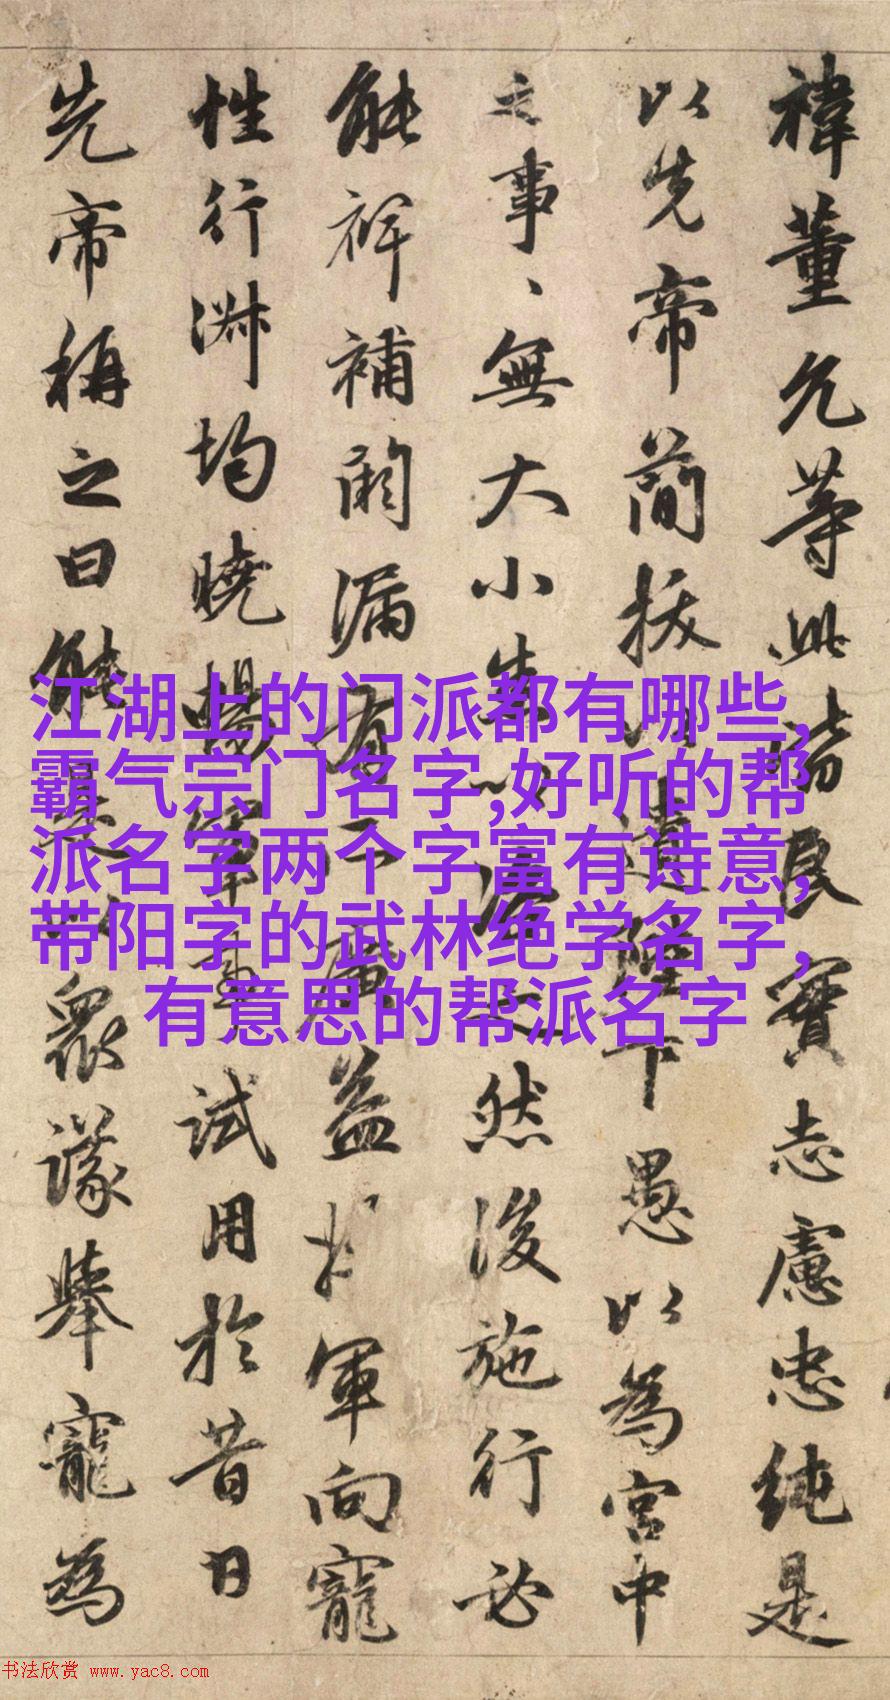 禕董允等此皆良實志慮忠純是
以先帝簡拔以遺陛下愚以為宮中
之事、無大小悉以咨之然後施行必
能裨補闕漏有所廣益將軍向寵
性行淑均曉暢軍事試用於昔日
先帝稱之曰能是以衆議舉寵為
江湖上的门派都有哪些,
霸气宗门名字,好听的帮
派名字两个字富有诗意,
带阳字的武林绝学名字,
有意思的帮派名字
书法欣赏 www.yac8.com